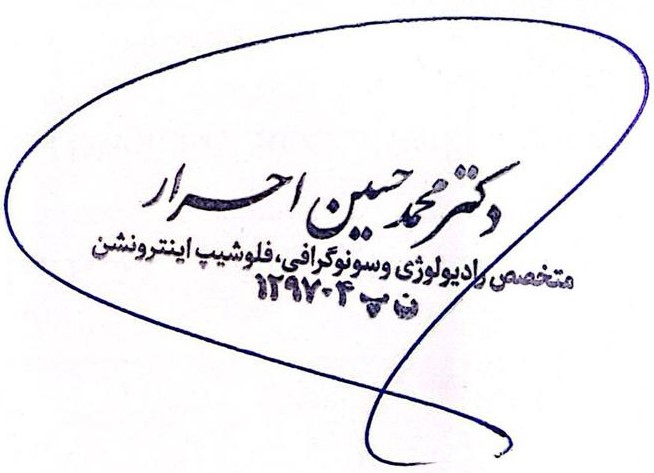 دکتر محمد حسین احرار
متخصص رادیولوژی و سونوگرافی، فلوشیپ اینترونشن
ن پ ۱۲۹۷۰۴